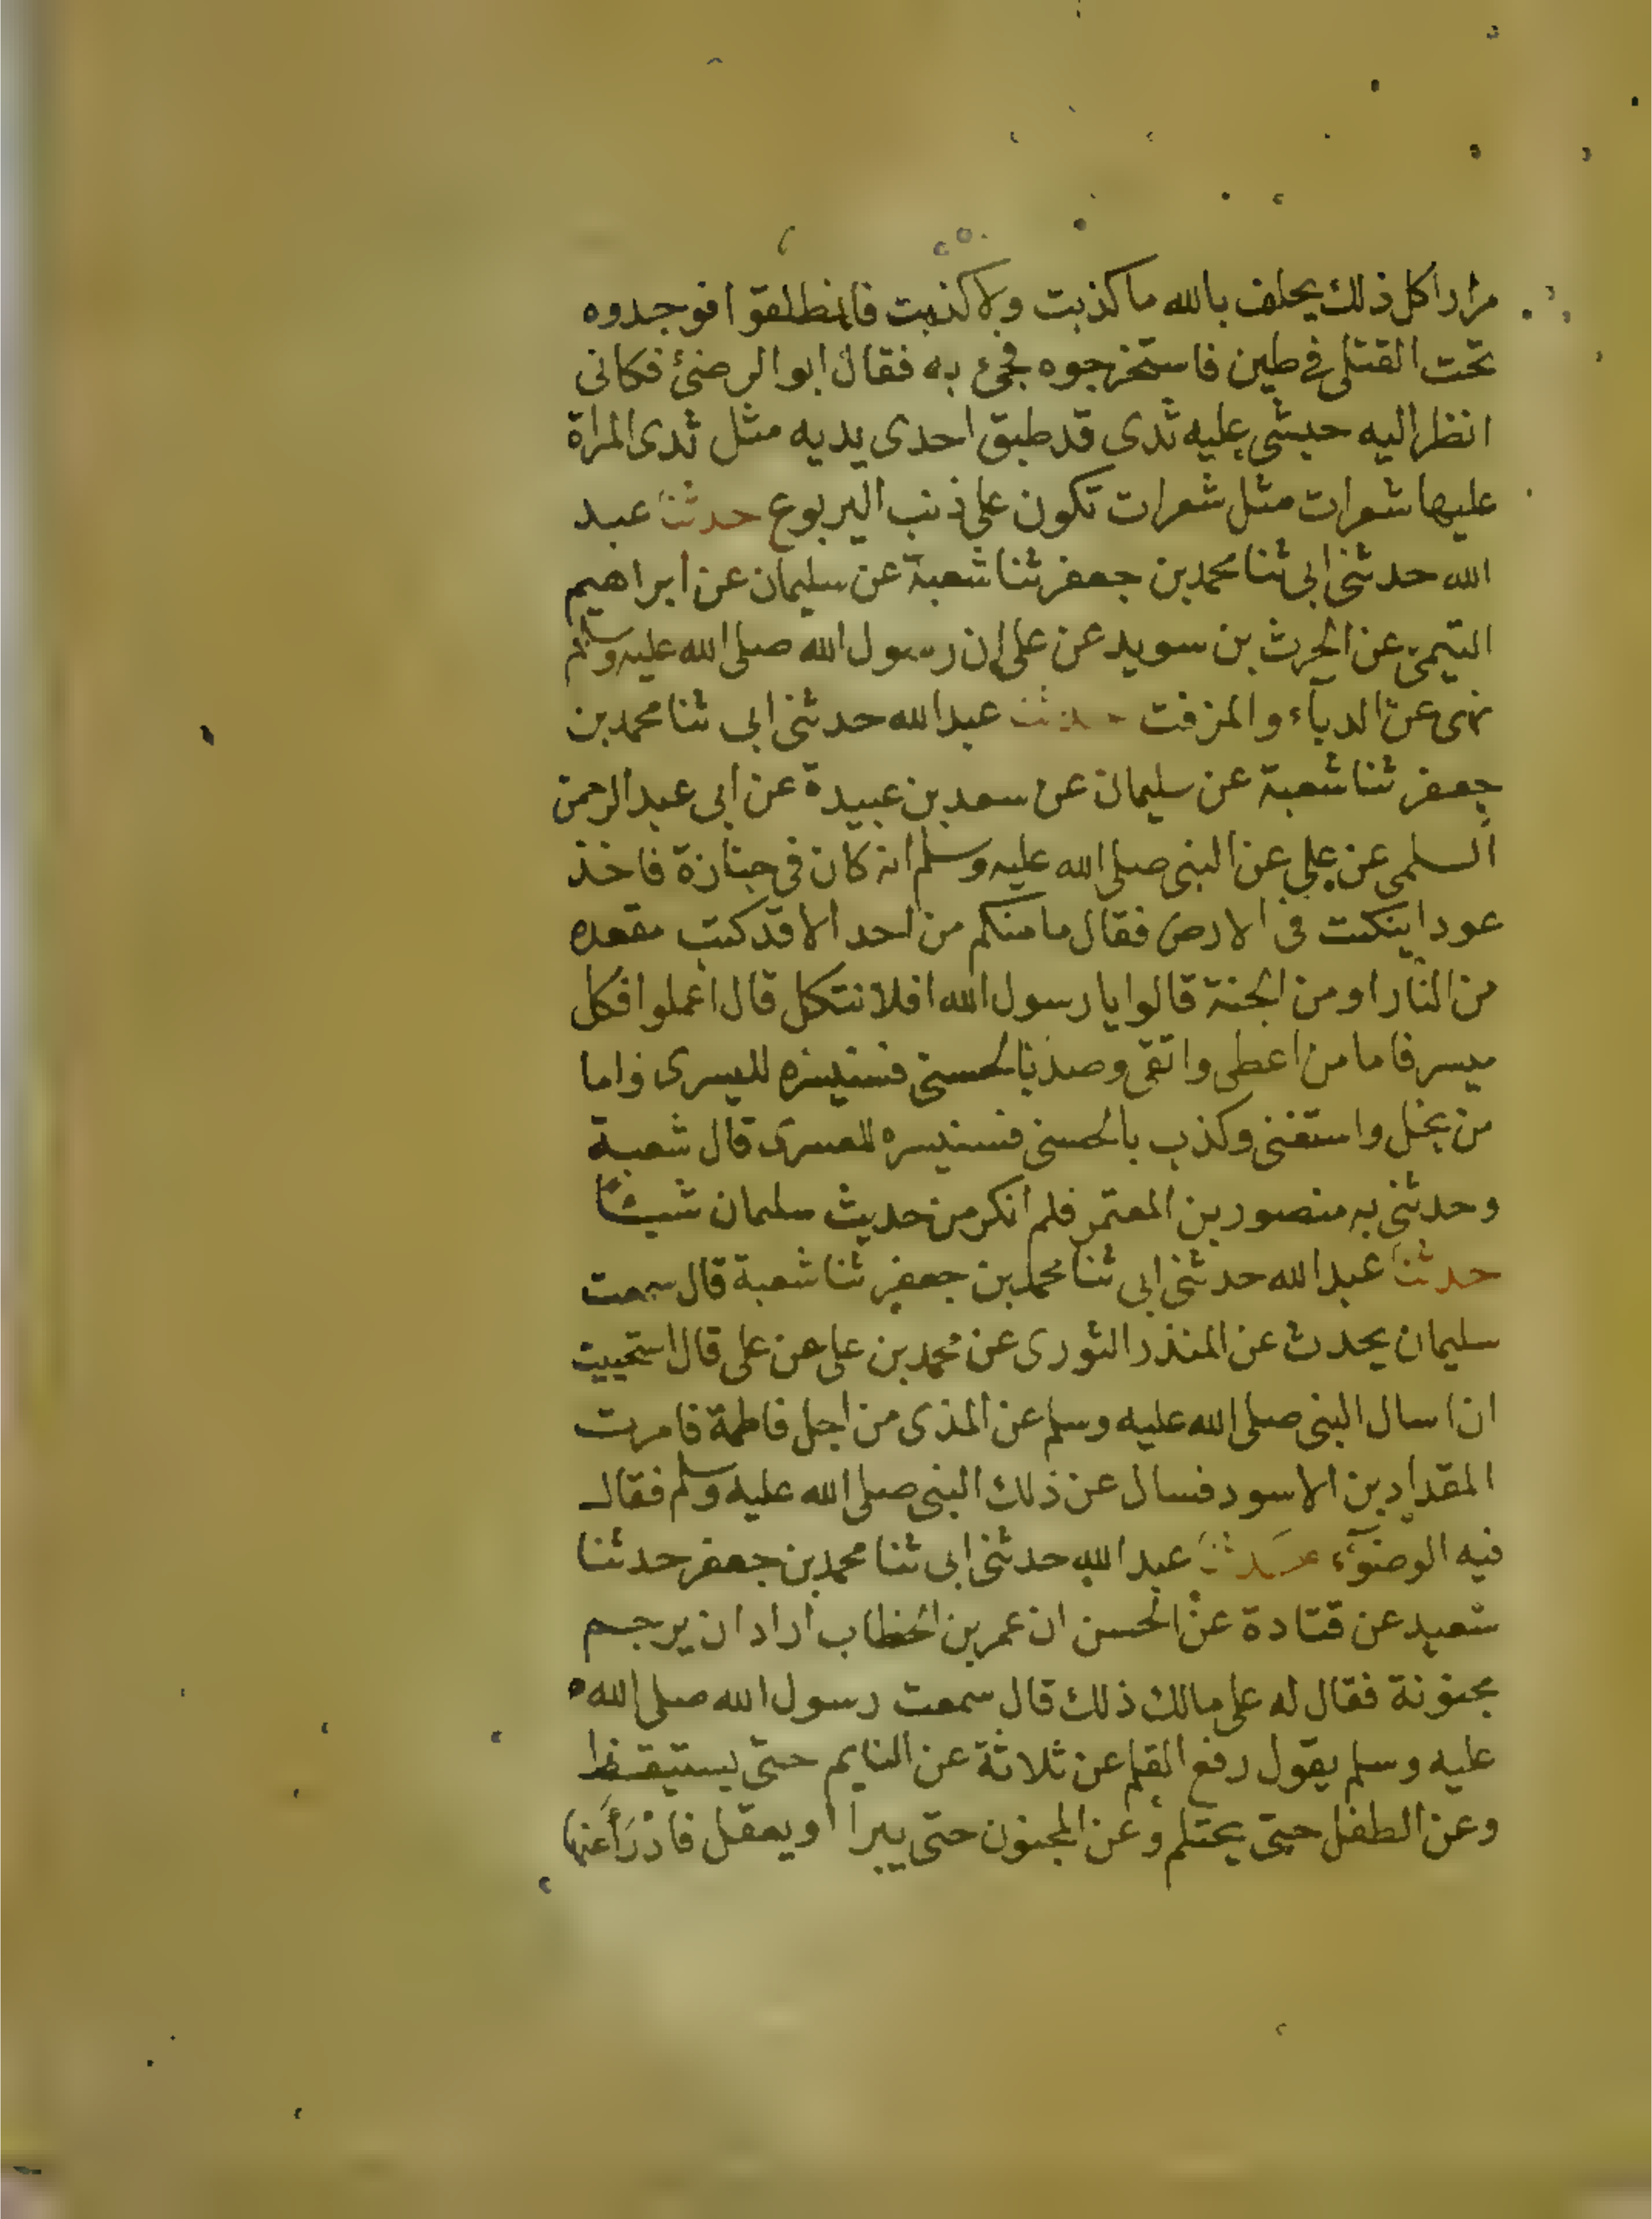 مرارا كل ذلك يحلف بالله ما كذبت ولا كذبت فانطلقوا فوجدوه
تحت القتلى في طين فاستخرجوه فجئ به فقال ابو الرضئ فكانى
انظر اليه حبشي عليه ثدى قد طبق احدى يديه مثل ثدى المراة
عليها شعرات مثل شعرات تكون على ذنب اليربوع حدثنا عبد
الله حدثني ابي ثنا محمد بن جعفر ثنا شعبة عن سليمان عن ابراهيم
التيمي عن الحرث بن سويد عن على ان رسول الله صلى الله عليه وسلم
نهى عن الدباء والمزفت حدثنا عبد الله حدثني ابى ثنا محمد بن
جعفر ثنا شعبة عن سليمان عن سعد بن عبيدة عن ابى عبد الرحمن
السلمى عن على عن النبى صلى الله عليه وسلم انه كان فى جنازة فاخذ
عودا ينكت فى الارض فقال ما منكم من احد الا قد كتب مقعده
من النار او من الجنة قالوا يا رسول الله افلا نتكل قال اعملوا فكل
ميسر فاما من اعطى واتقى وصدق بالحسنى فسنيسره لليسرى واما
من بخل واستغنى وكذب بالحسنى فسنيسره للعسرى قال شعبة
وحدثنى به منصور بن المعتمر فلم انكر من حديث سليمان شيئا
حدثنا عبد الله حدثنى ابى ثنا محمد بن جعفر ثنا شعبة قال سمعت
سليمان يحدث عن المنذر الثورى عن محمد بن على عن على قال استحييت
ان اسال النبى صلى الله عليه وسلم عن المذى من اجل فاطمة فامرت
المقداد بن الاسود فسال عن ذلك النبى صلى الله عليه وسلم فقال
فيه الوضوء حدثنا عبد الله حدثنى ابى ثنا محمد بن جعفر حدثنا
سعيد عن قتادة عن الحسن ان عمر بن الخطاب اراد ان يرجم
مجنونة فقال له على مالك ذلك قال سمعت رسول الله صلى الله
عليه وسلم يقول رفع القلم عن ثلاثة عن النايم حتى يستيقظ
وعن الطفل حتى يحتلم وعن المجنون حتى يبرا او يعقل فادرأ عنها